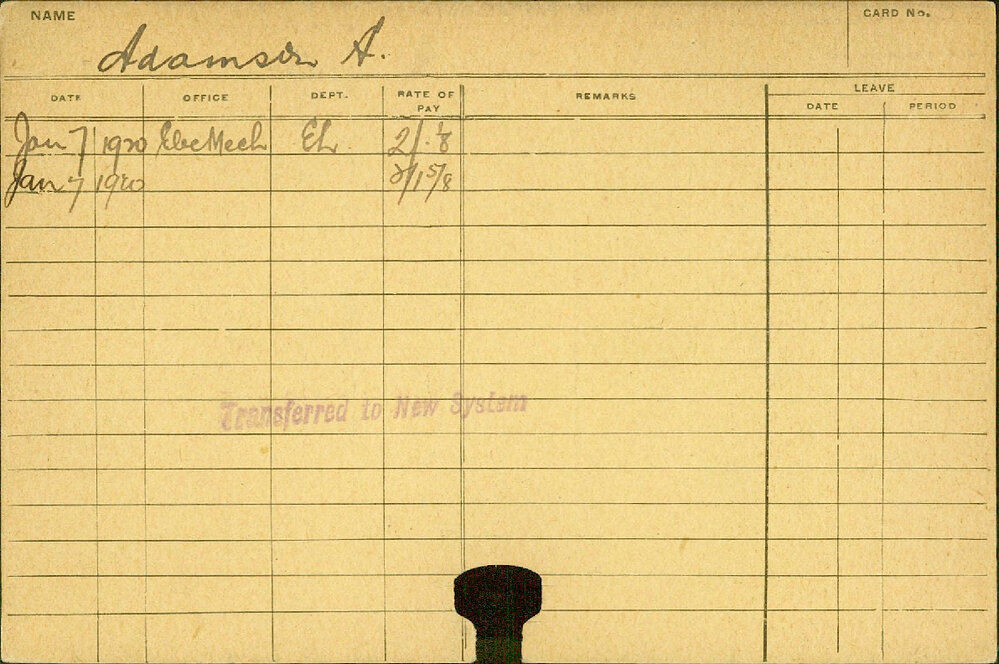 NAME
CARD No.
Adamson A.
DATE OFFICE DEPT. RATE OF PAY REMARKS LEAVE
DATE PERIOD
Jan 7 1920 Elec Mech El.
Jan 7 1920
Transferred to New System